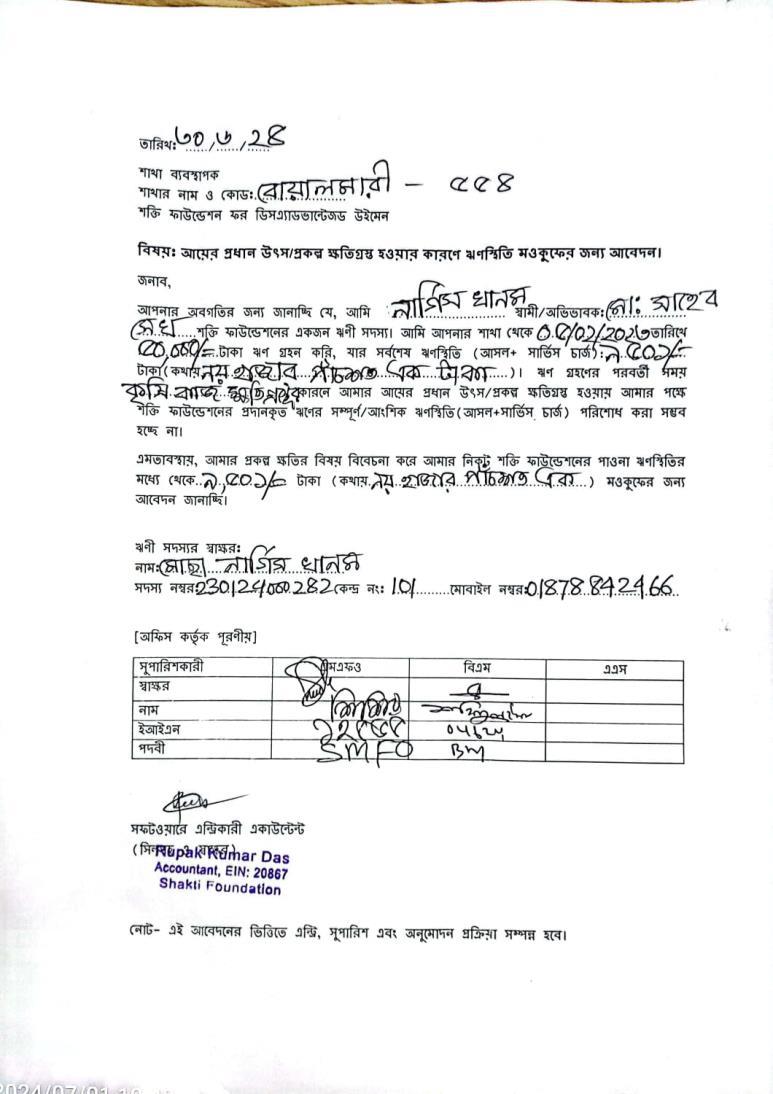 তারিখঃ ৩০,৬,২৪
শাখা ব্যবস্থাপক
শাখার নাম ও কোড: বোয়ালমারী - ৫৫৪
শক্তি ফাউন্ডেশন ফর ডিসএ্যাডভান্টেজড উইমেন
বিষয়: আয়ের প্রধান উৎস/প্রকল্প ক্ষতিগ্রস্থ হওয়ার কারণে ঋণস্থিতি মওকুফের জন্য আবেদন।
জনাব,
আপনার অবগতির জন্য জানাচ্ছি যে, আমি নার্গিস খানম স্বামী/অভিভাবক: মো: সাহেব
সেখ শক্তি ফাউন্ডেশনের একজন ঋণী সদস্য। আমি আপনার শাখা থেকে ০৫/০২/২০২৩ তারিখে
৫০,০০০/= টাকা ঋণ গ্রহন করি, যার সর্বশেষ ঋণস্থিতি (আসল+ সার্ভিস চার্জ): ৯,৫০১/=
টাকা(কথায় নয় হাজার পাঁচশত এক টাকা)। ঋণ গ্রহণের পরবর্তী সময়
কৃষি কাজে ক্ষতিগ্রস্থ কারনে আমার আয়ের প্রধান উৎস/প্রকল্প ক্ষতিগ্রস্থ হওয়ায় আমার পক্ষে
শক্তি ফাউন্ডেশনের প্রদানকৃত ঋণের সম্পূর্ণ/আংশিক ঋণস্থিতি(আসল+সার্ভিস চার্জ) পরিশোধ করা সম্ভব
হচ্ছে না।
এমতাবস্থায়, আমার প্রকল্প ক্ষতির বিষয় বিবেচনা করে আমার নিকট শক্তি ফাউন্ডেশনের পাওনা ঋণস্থিতির
মধ্যে থেকে ৯,৫০১/= টাকা (কথায় নয় হাজার পাঁচশত এক) মওকুফের জন্য
আবেদন জানাচ্ছি।
ঋণী সদস্যর স্বাক্ষর:
নাম: মোছা নার্গিস খানম
সদস্য নম্বর: 230124000282 কেন্দ্র নং: 101 মোবাইল নম্বর: 01878842466
[অফিস কর্তৃক পূরণীয়]
সুপারিশকারী এমএফও বিএম এএস
স্বাক্ষর
নাম
ইআইএন ১২৫৫৫
পদবী SMFO BM
সফটওয়ারে এন্ট্রিকারী একাউন্টেন্ট
Rupak Kumar Das
Accountant, EIN: 20867
Shakti Foundation
নোট- এই আবেদনের ভিত্তিতে এন্ট্রি, সুপারিশ এবং অনুমোদন প্রক্রিয়া সম্পন্ন হবে।